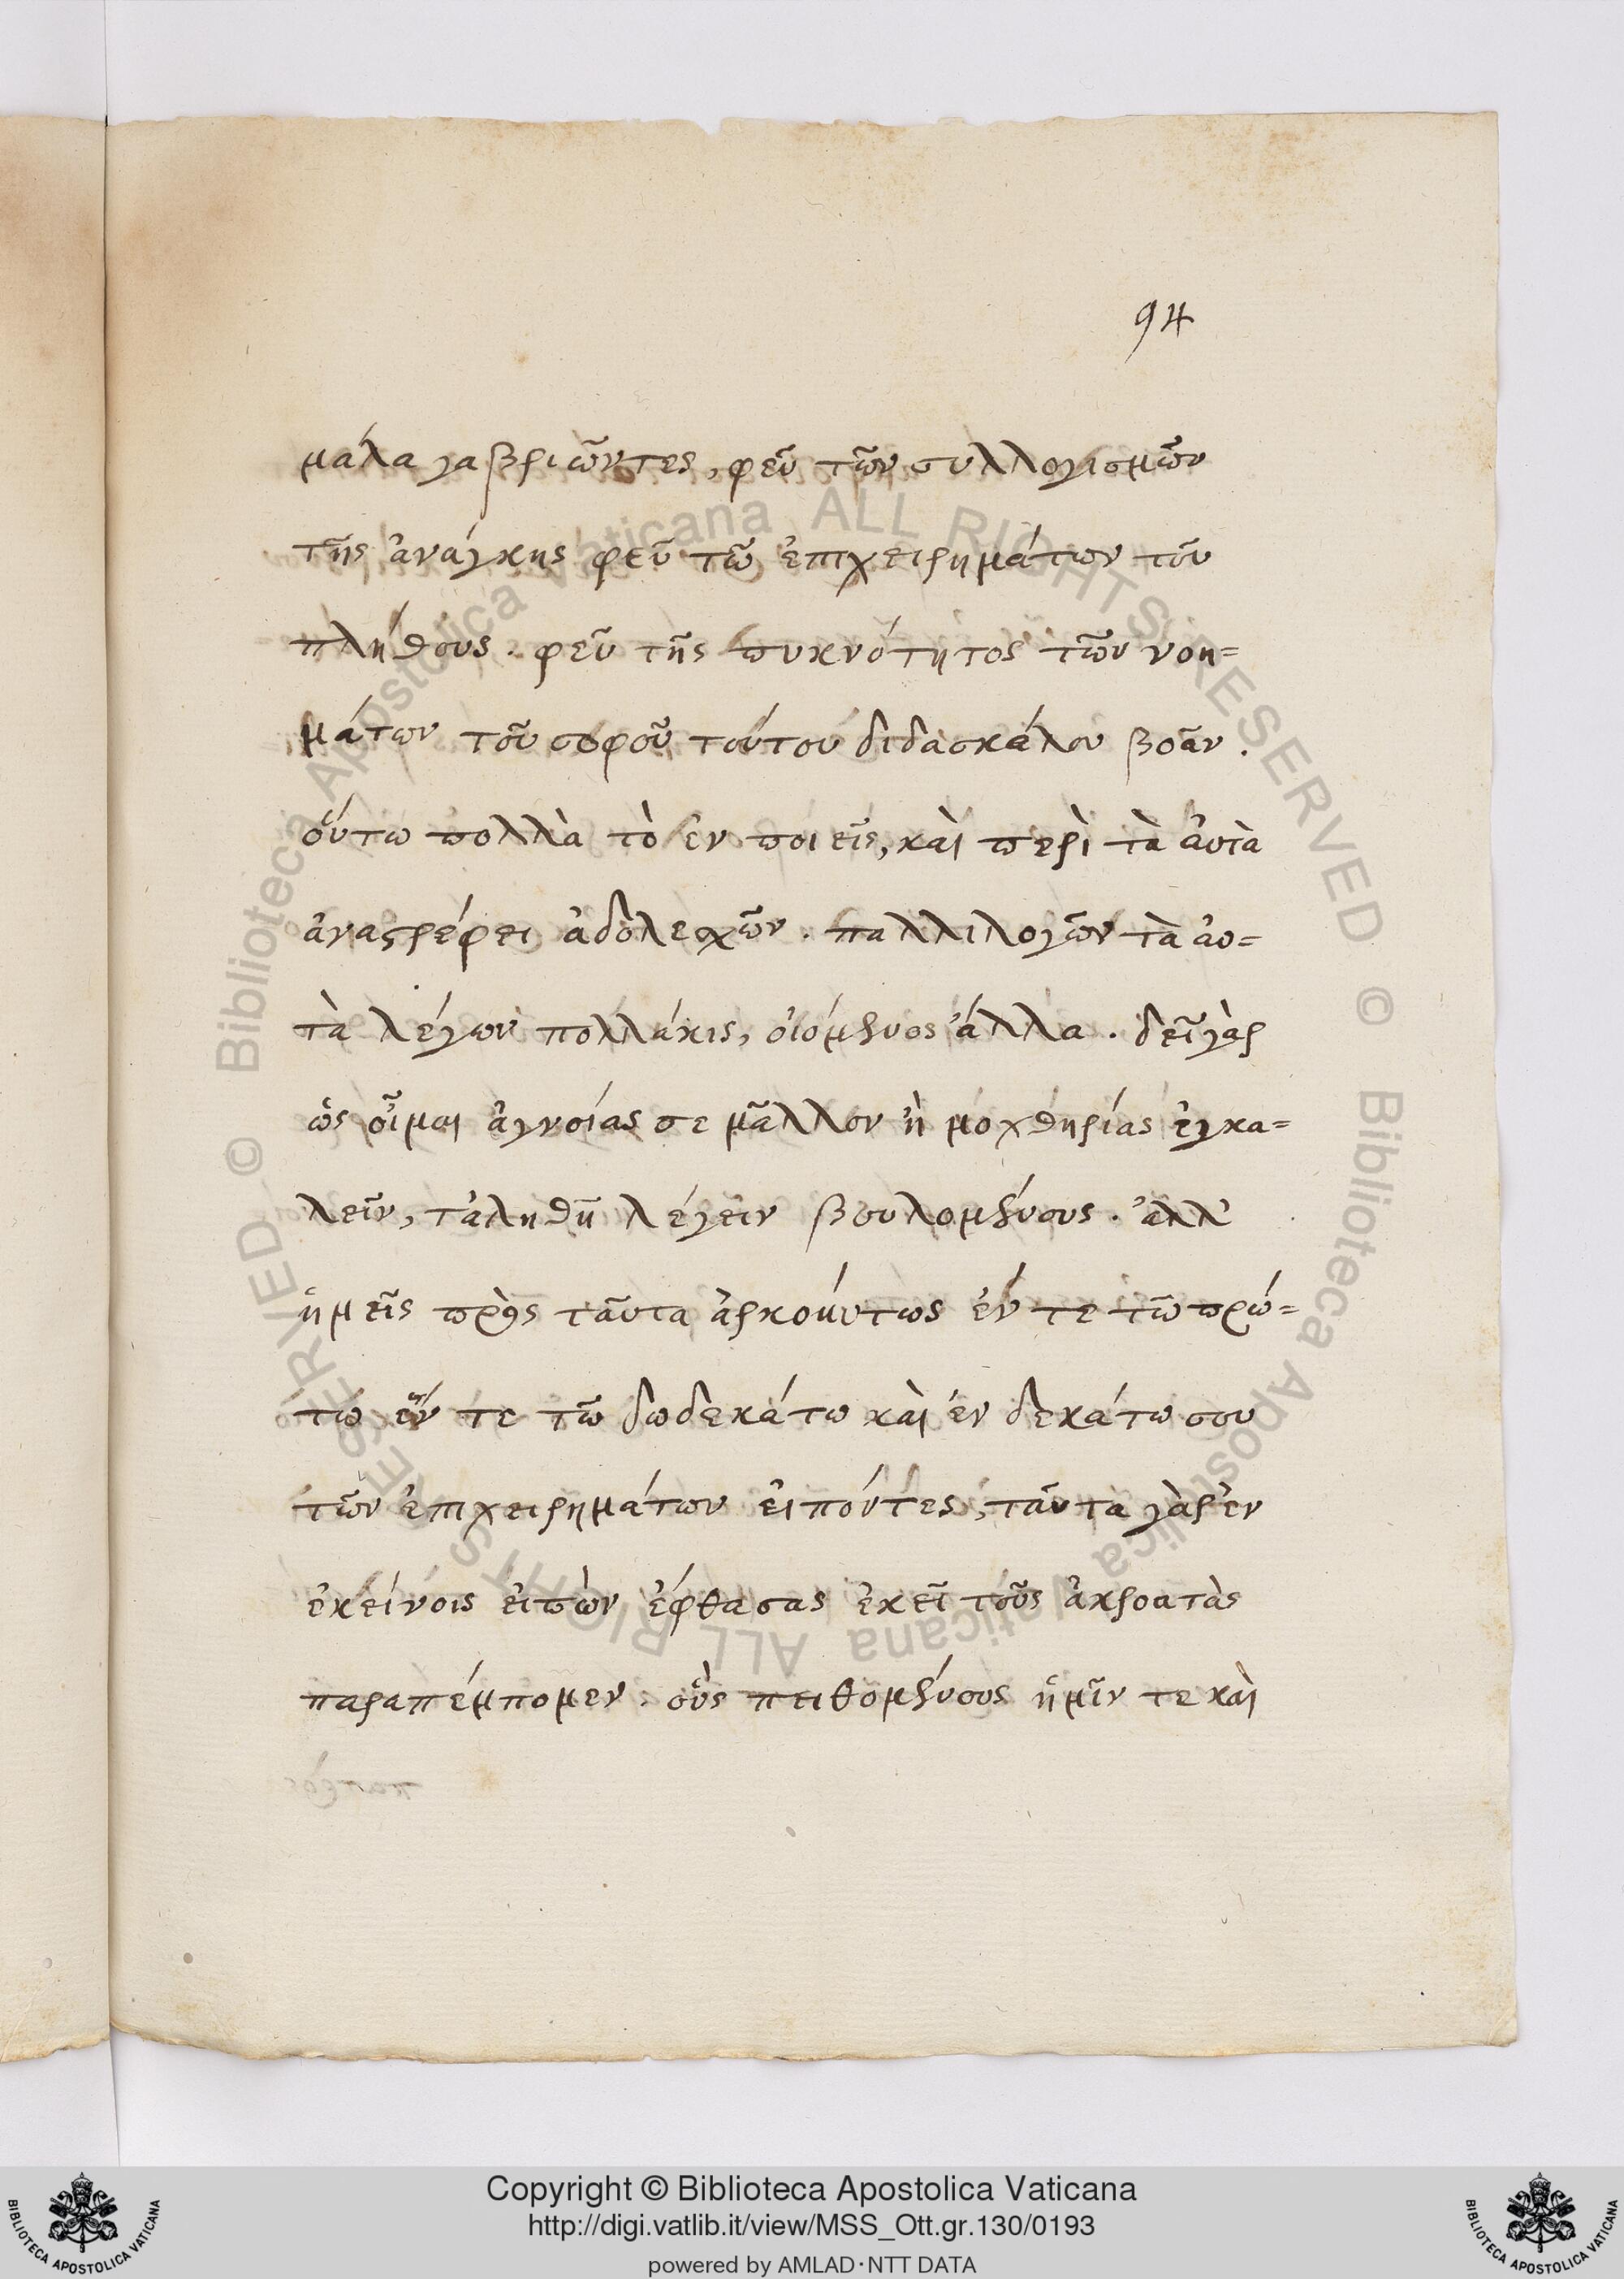 94
μάλα γαβριῶντες, φεῦ τῶν συλλογισμῶν
τῆς ἀνάγκης φεῦ τῶ ἐπιχειρημάτων τοῦ
πλήθους. φεῦ τῆς πυκνότητος τῶν νοη=
μάτων τοῦ σοφοῦ τούτου διδασκάλου βοᾶν.
οὕτω πολλὰ τὸ ἐν ποιεῖς, καὶ περὶ τὰ ἀυτὰ
ἀναστρέφει ἀδολεσχῶν. παλλιλογῶν τὰ ἀυ=
τὰ λέγων πολλάκις, οἰόμενος ἄλλα. δεῖ γὰρ
ὡς οἶμαι ἀγνοίας σε μᾶλλον ἢ μοχθηρίας ἐγκα=
λεῖν, τἀληθῆ λέγειν βουλομένους. ἀλλ'
ἡμεῖς πρὸς ταῦτα ἀρκούντως ἔν τε τῶ πρώ=
τω ἔν τε τῶ δωδεκάτω καὶ ἐν δεκάτω σου
τῶν ἐπιχειρημάτων εἰπόντες, ταῦτα γὰρ ἐν
ἐκείνοις εἰπὼν ἔφθασας ἐκεῖ τοῦς ἀκροατὰς
παραπέμπομεν. οὓς πειθομένους ἡμῖν τε καὶ
Copyright © Biblioteca Apostolica Vaticana
http://digi.vatlib.it/view/MSS_Ott.gr.130/0193
powered by AMLAD·NTT DATA
BIBLIOTECA APOSTOLICA VATICANA
BIBLIOTECA APOSTOLICA VATICANA
© Biblioteca Apostolica Vaticana ALL RIGHTS RESERVED
© Biblioteca Apostolica Vaticana ALL RIGHTS RESERVED